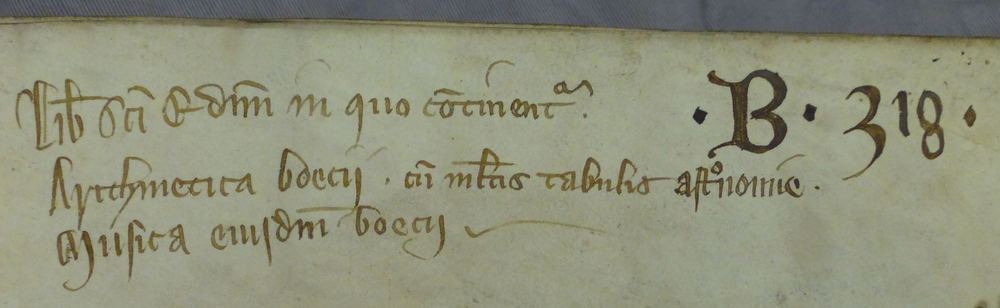 Lib̄ Sc̄i Edm̄ in quo cōtinentᵃ. · B · 318 ·
Arithmetica boecij . cū ml̄tis tabulis astᵒnomie .
Musica eiusdm̄ boecij